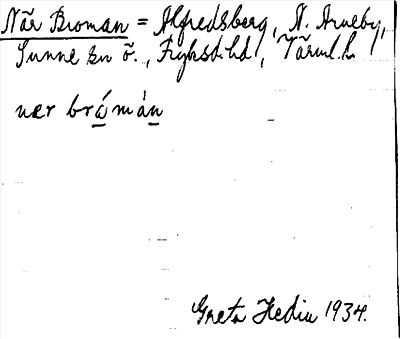 När Broman = Alfredsberg, N. Arneby,
Sunne sn ö., Fryksd. hd, Värml. l.
nær brámàn
Greta Hedin 1934.